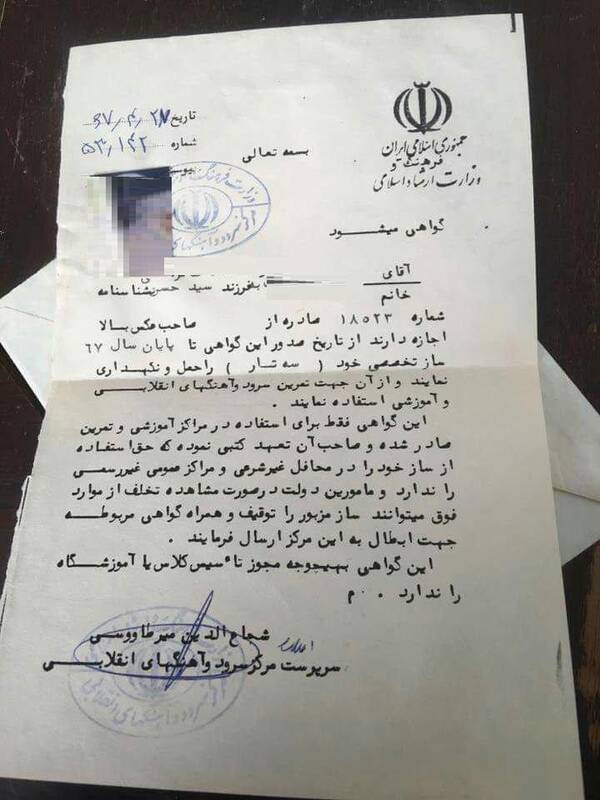 جمهوری اسلامی ایران
وزارت فرهنگ و ارشاد اسلامی
تاریخ ۶۷٫۴٫۲۸
شماره ۵۳٫۱۴۲
بسمه تعالی
گواهی میشود
آقای
خانم
فرزند سید حسن بشناسنامه
شماره ۱۸۵۲۳ صادره از صاحب عکس بالا
اجازه دارند از تاریخ صدور این گواهی تا پایان سال ۶۷
ساز تخصصی خود ( سه تار ) را حمل و نگهداری
نمایند و از آن جهت تمرین سرود و آهنگهای انقلابی
و آموزشی استفاده نمایند .
این گواهی فقط برای استفاده در مراکز آموزشی و تمرین
صادر شده و صاحب آن تعهد کتبی نموده که حق استفاده
از ساز خود را در محافل غیرشرعی و مراکز عمومی غیررسمی
را ندارد و مامورین دولت در صورت مشاهده تخلف از موارد
فوق میتوانند ساز مزبور را توقیف و همراه گواهی مربوطه
جهت ابطال به این مرکز ارسال فرمایند .
این گواهی بهیچوجه مجوز تاسیس کلاس یا آموزشگاه
را ندارد . م
شجاع الدین میرطاووسی
سرپرست مرکز سرود و آهنگهای انقلابی